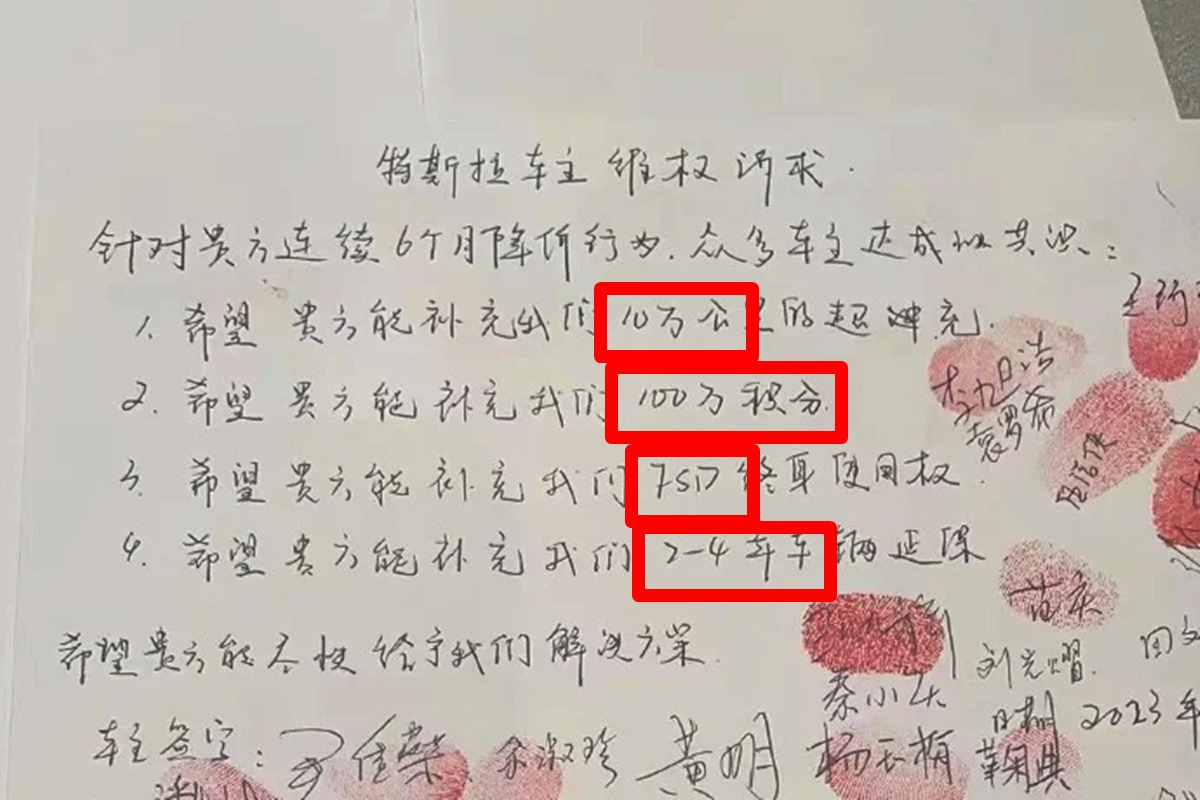 特斯拉车主维权诉求.
针对贵方连续6个月降价行为.众多车主达成以共识:
1. 希望贵方能补充我们10万公里的超冲充.
2. 希望贵方能补充我们100万积分.
3. 希望贵方能补充我们FSD终身使用权.
4. 希望贵方能补充我们2-4年车辆延保
希望贵方能尽快给予我们解决方案.
车主签字: 余淑珍 黄明
刘克熠.
日期 2023年